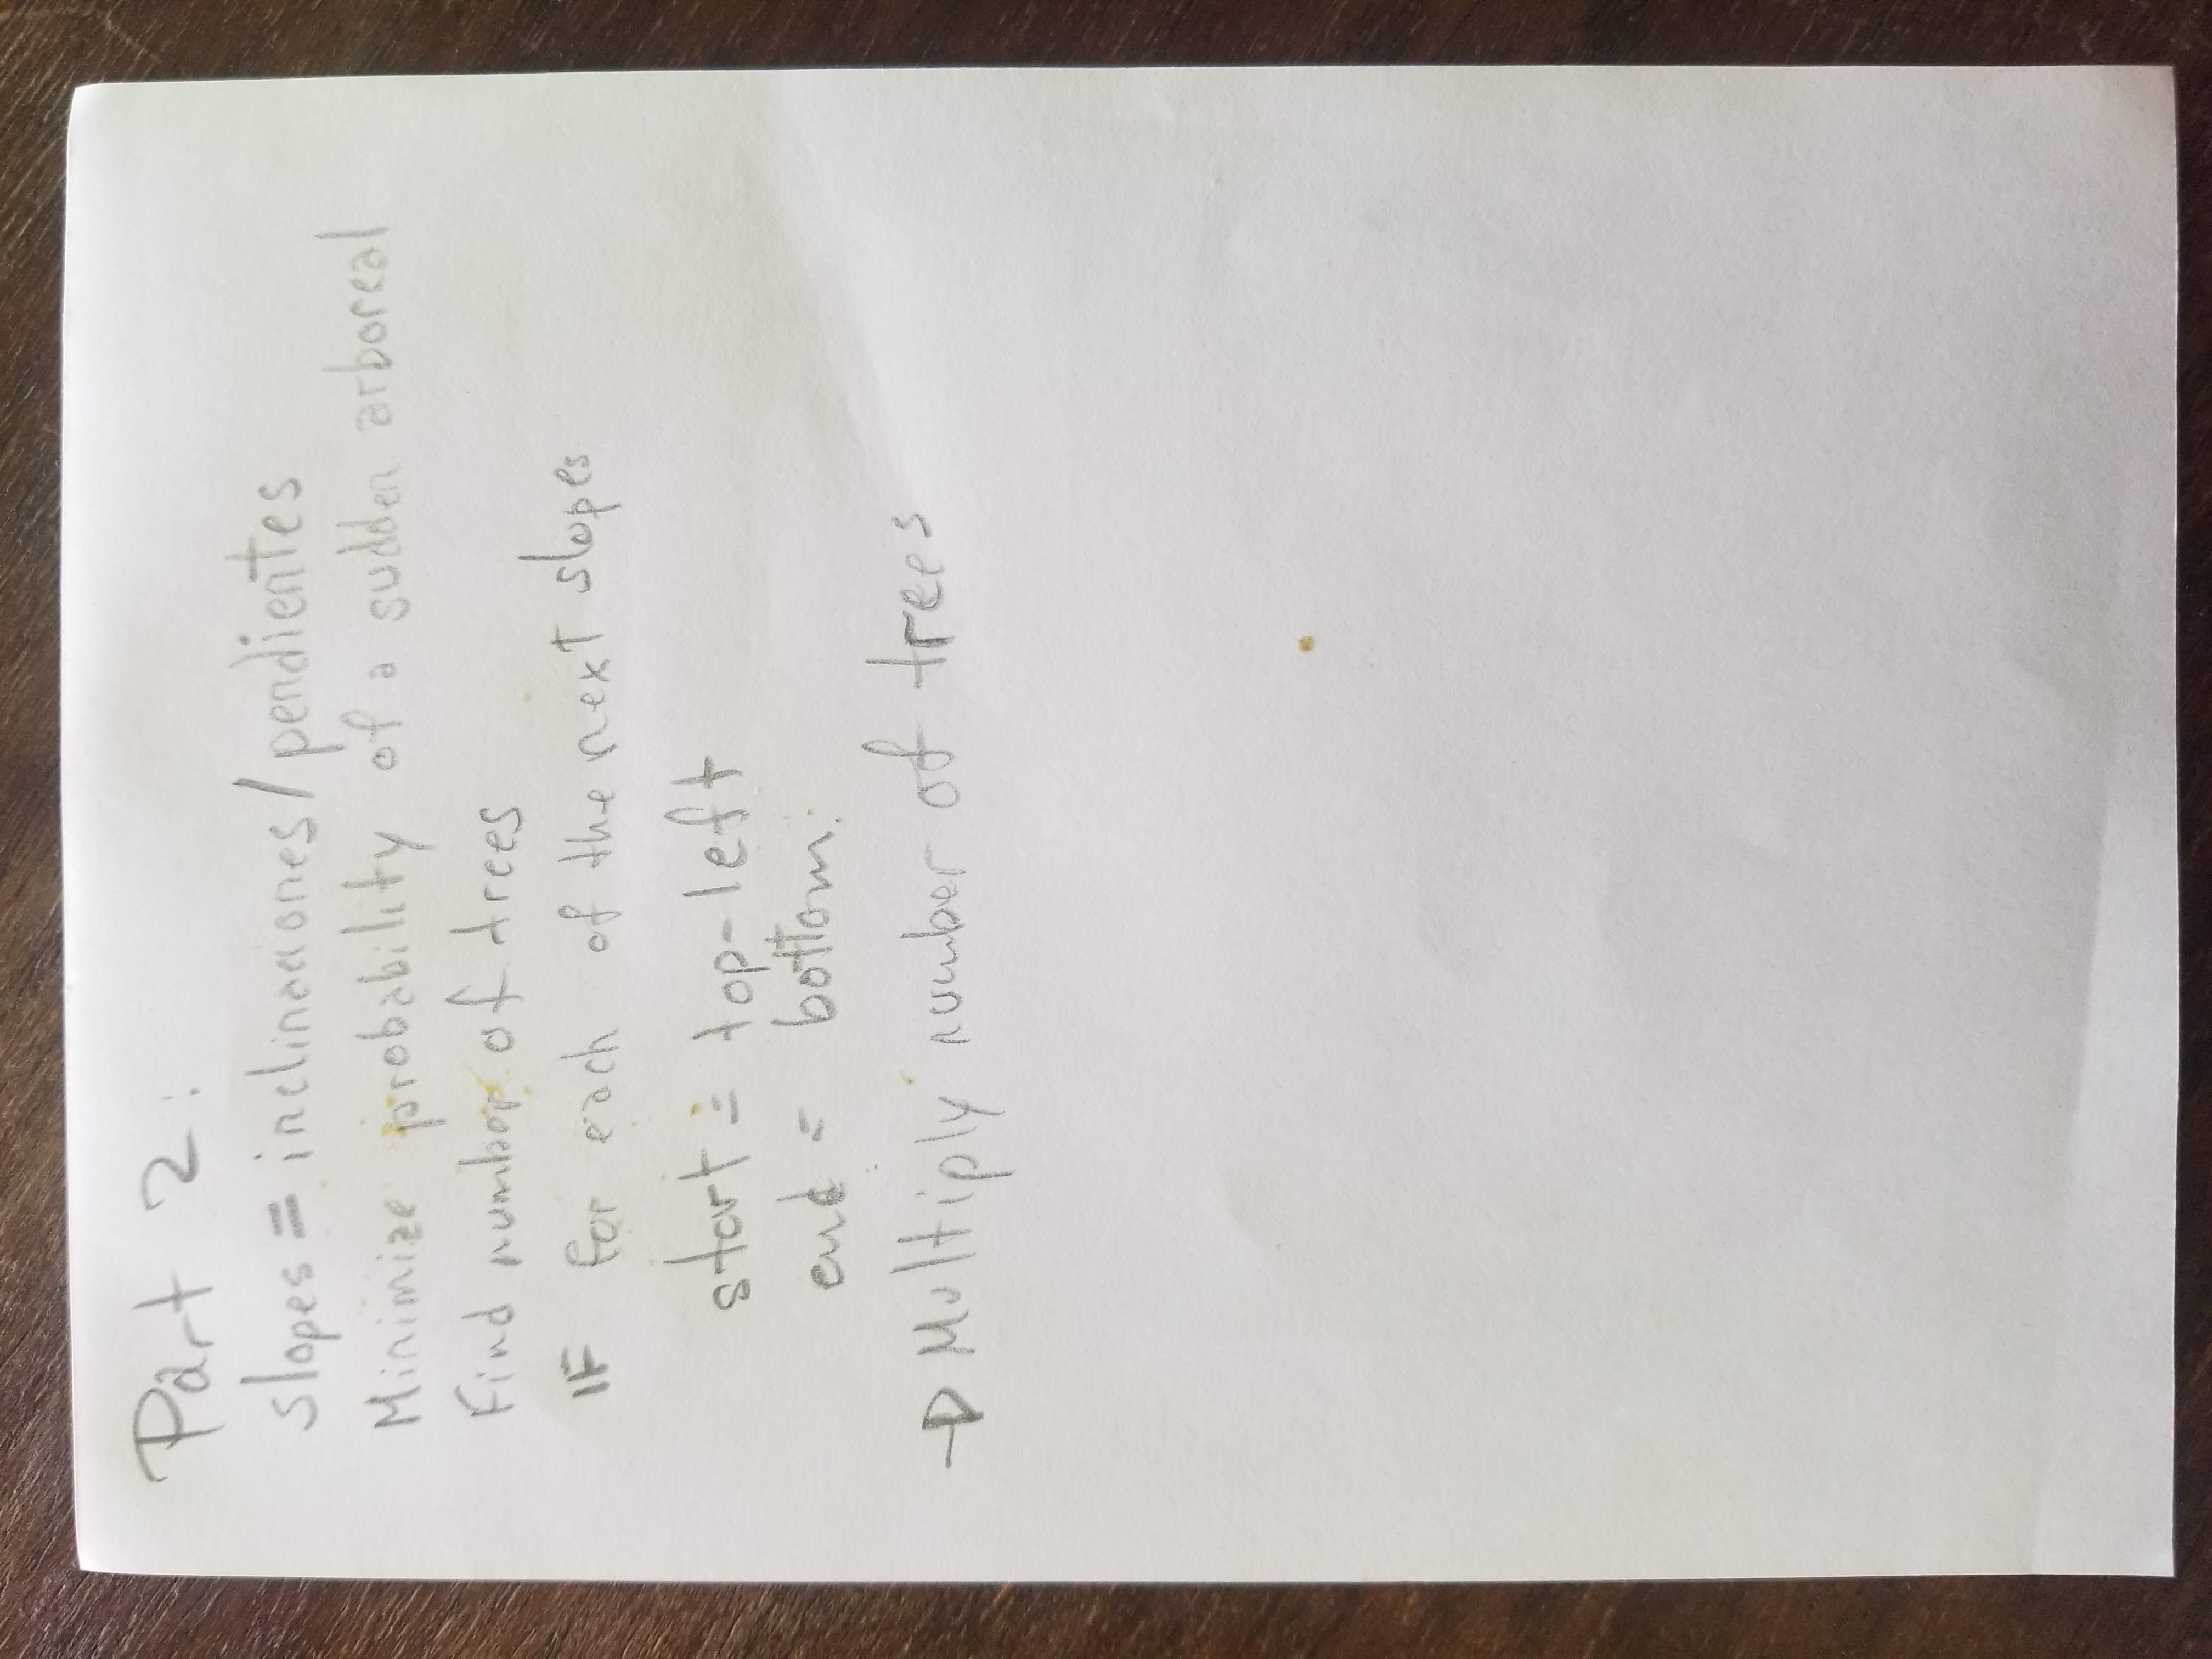 Part 2:
slopes = inclinaciones / pendientes
Minimize probability of a sudden arboreal
Find number of trees
IF for each of the next slopes
start = top-left
end = bottom:
→ Multiply number of trees